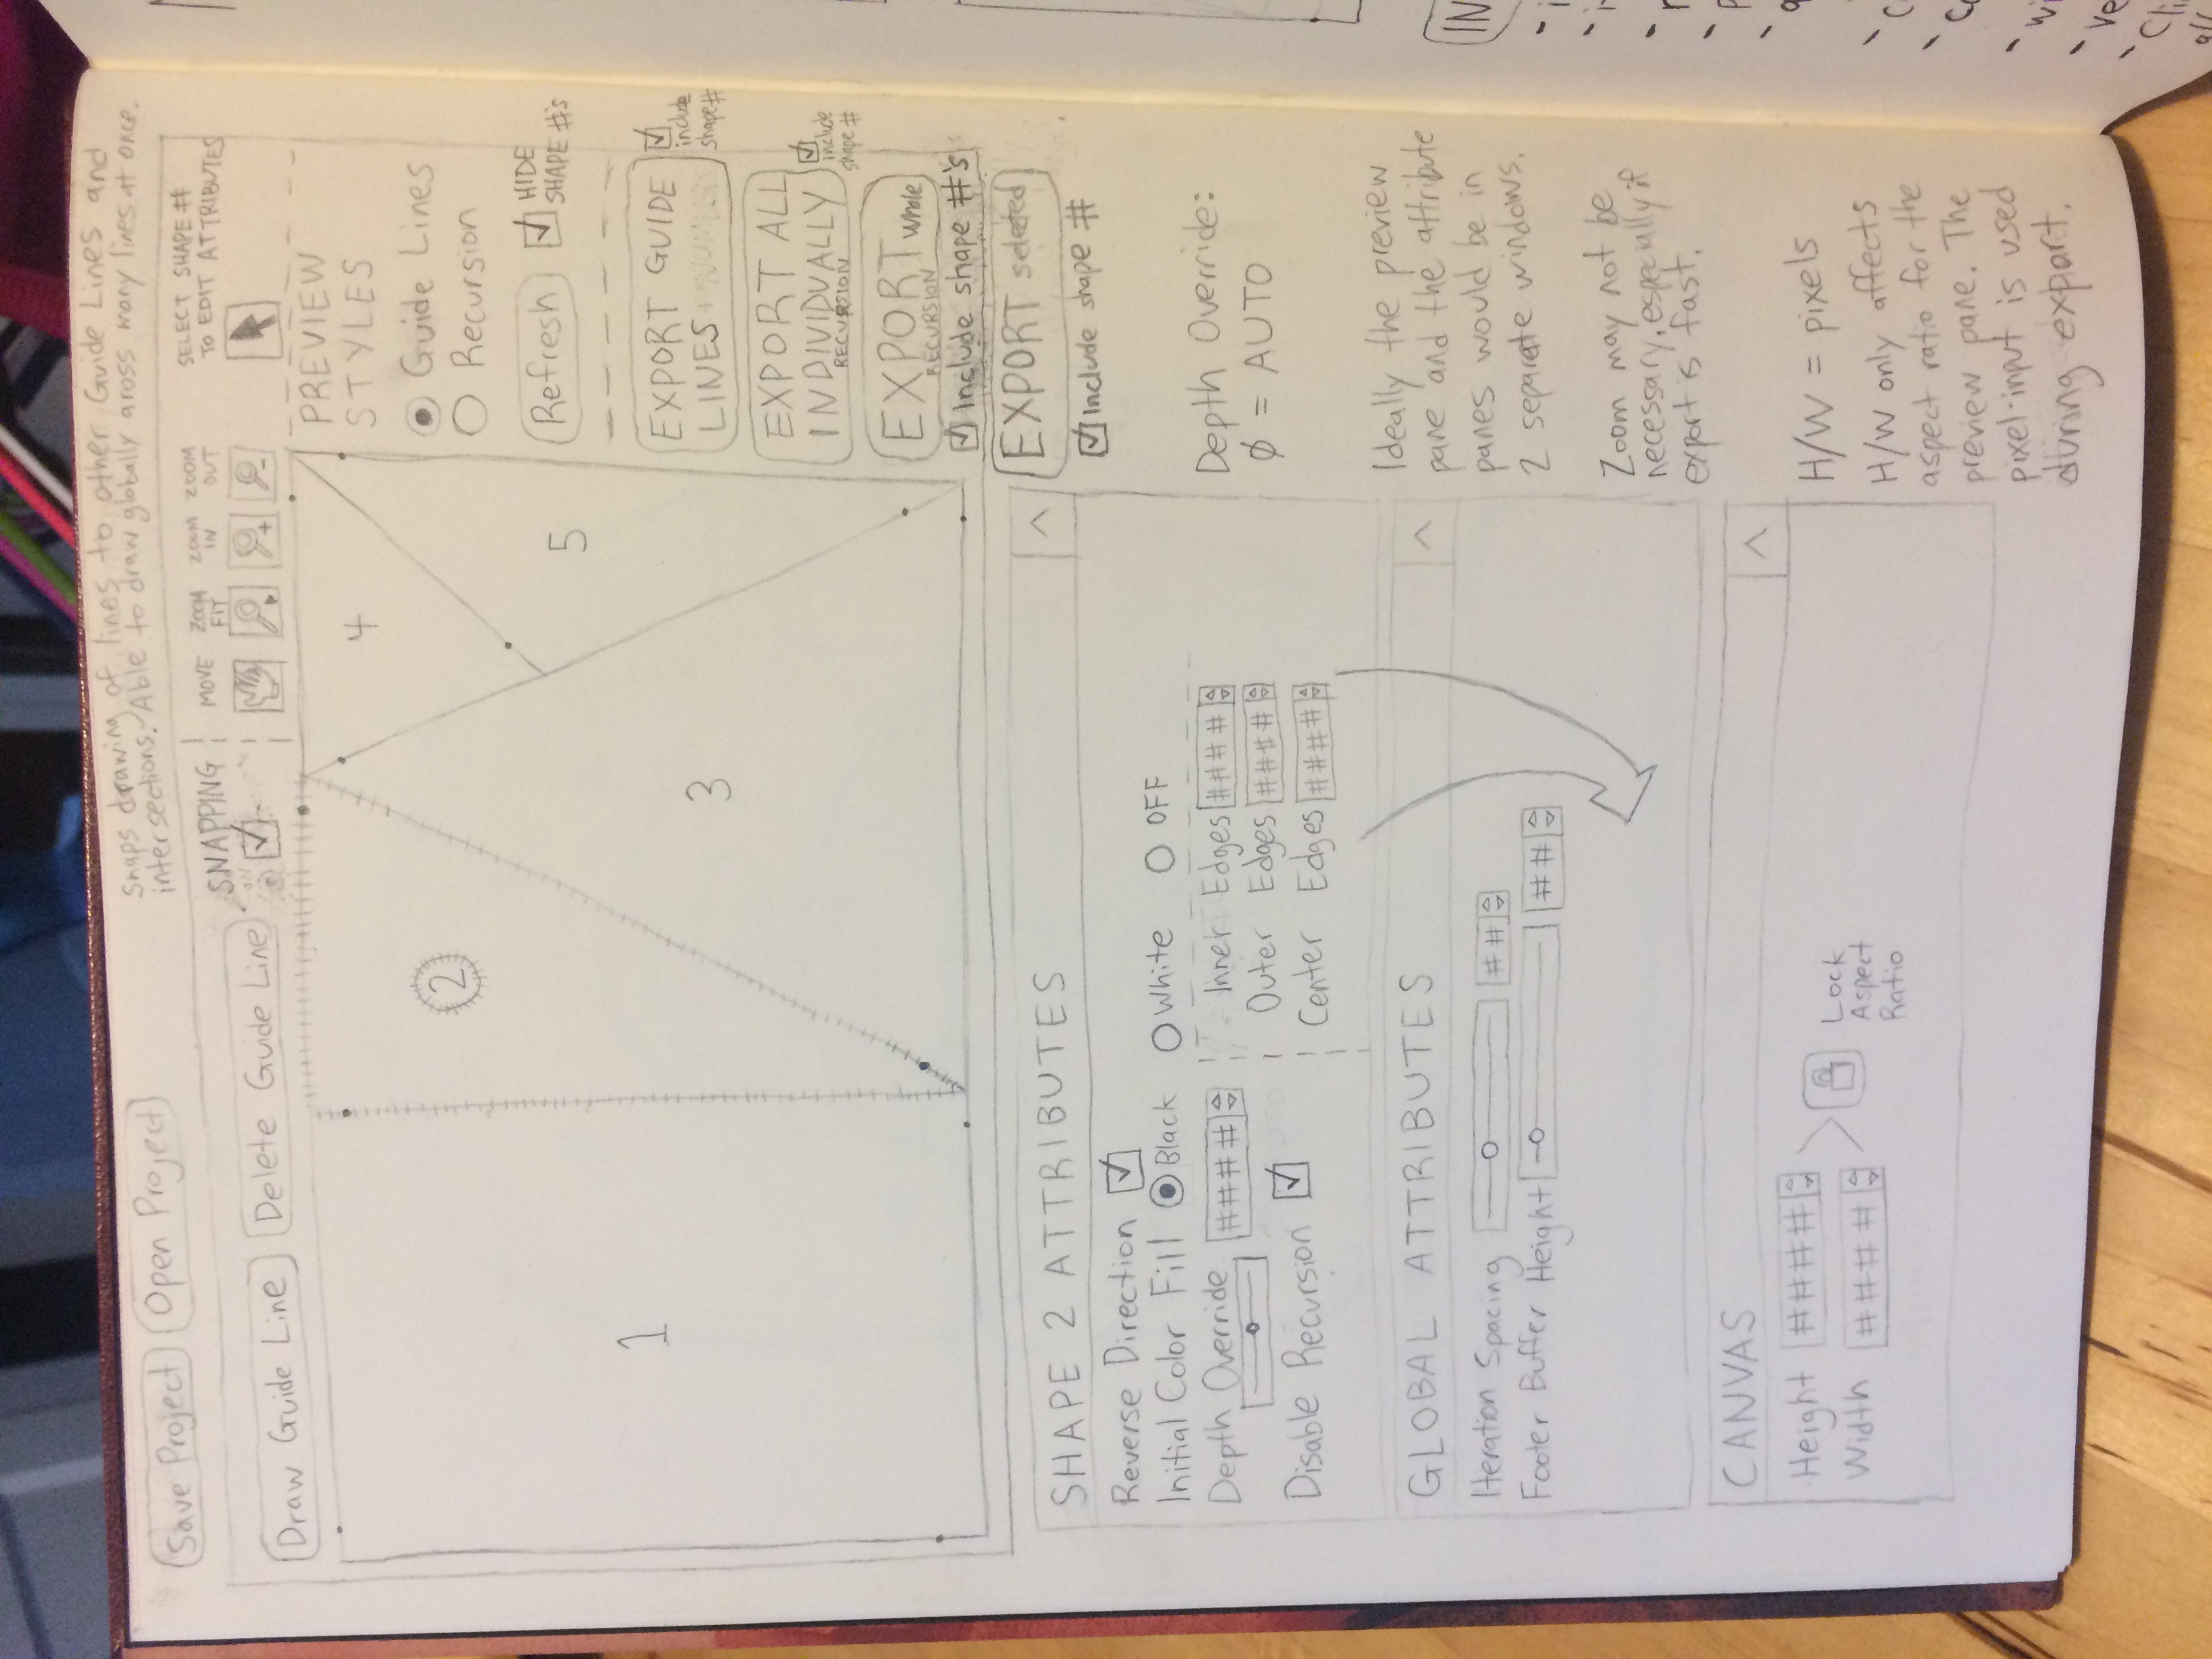 Snaps drawing of lines to other Guide Lines and
intersections. Able to draw globally aross many lines at once.
Save Project
Open Project
Draw Guide Line
Delete Guide Line
SNAPPING
MOVE
ZOOM
FIT
ZOOM
IN
ZOOM
OUT
SELECT SHAPE #
TO EDIT ATTRIBUTES
1
2
3
4
5
PREVIEW
STYLES
Guide Lines
Recursion
Refresh
HIDE
SHAPE #'s
EXPORT GUIDE
LINES
include
shape #
EXPORT ALL
INDIVIDUALLY
RECURSION
include
shape #
EXPORT whole
RECURSION
Include shape #'s
EXPORT seleted
Include shape #
SHAPE 2 ATTRIBUTES
^
Reverse Direction
Initial Color Fill Black White OFF
Depth Override ####
Inner Edges ####
Outer Edges ####
Center Edges ####
Disable Recursion
Depth Override:
∅ = AUTO
GLOBAL ATTRIBUTES
^
Iteration Spacing ##
Footer Buffer Height ##
Ideally the preview
pane and the attribute
panes would be in
2 separate windows.
Zoom may not be
necessary, especially if
export is fast.
CANVAS
^
Height ####
Width ####
Lock
Aspect
Ratio
H/W = pixels
H/W only affects
aspect ratio for the
preview pane. The
pixel-input is used
during export.
IN